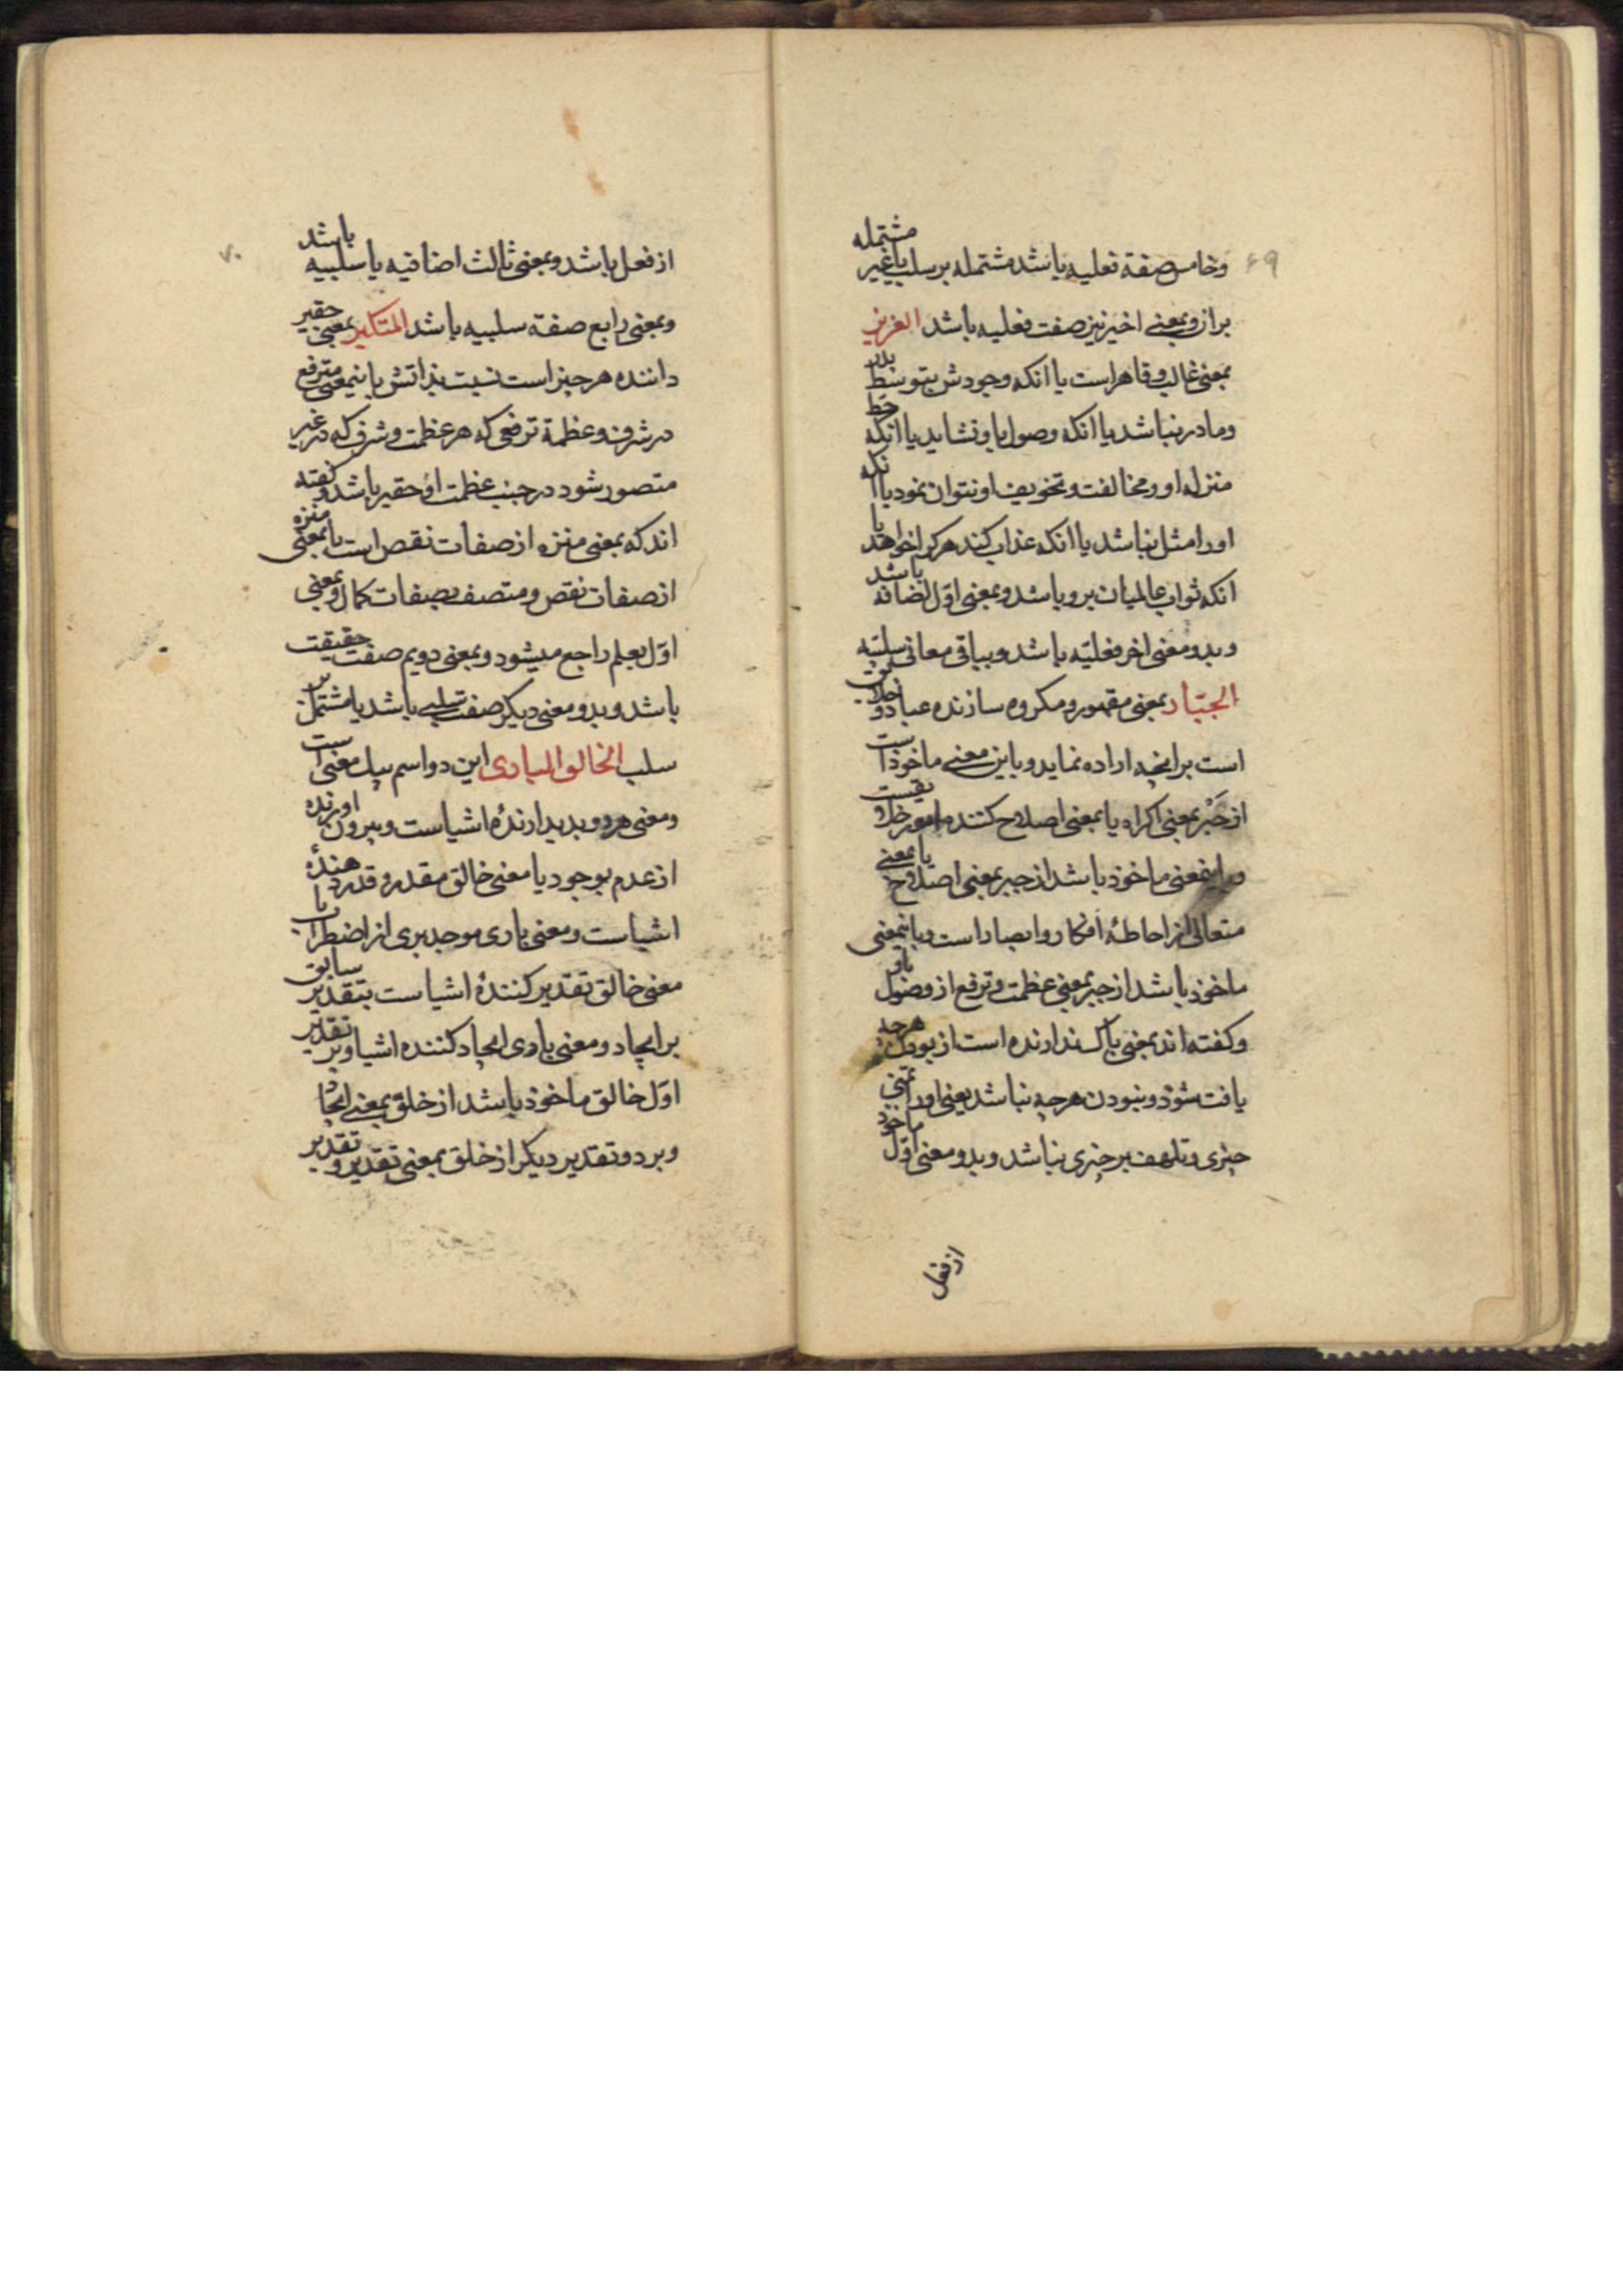 ۶۹
وخامس صفة فعلیه باشد مشتمله بر سلب یا غیر مشتمله
بران وبمعنے اخیر نیز صفت فعلیه باشد العزیز
بمعنی غالب وقاهر است یا انکه وجودش بتوسط پدر
ومادر نباشد یا انکه وصول باو نشاید یا انکه حط
منزله او ومخالفت وتخویف او نتوان نمود یا انکه
اورا مثل نباشد یا انکه عذاب کند هرکرا خواهد یا
انکه ثواب عالمیان برو باشد وبمعنی اول اضافه باشد
وبدو معنی اخر فعلیّه باشد وبباقی معانی سلبیّه
الجبّار بمعنی مقهور ومکروه سازنده عباد وخلایق
است برانچه اراده نماید وباین معنے ماخوذ است
از جَبْر بمعنی اکراه یا بمعنی اصلاح کننده امور خلایقست
وباینمعنی ماخوذ باشد از جبر بمعنی اصلاح یا بمعنے
متعالی از احاطهٔ افکار وابصار است وباینمعنی
ماخوذ باشد از جبر بمعنی عظمت وترفع از وصول باو
وکفته اند بمعنی باک ندارنده است از بودن هرچه
یافت شود ونبودن هرچه نباشد یعنی اورا تمنّی
چیزی وتلهف بر چیزی نباشد وبدو معنی اوّل ماخوذ
از فعل
۷۰
از فعل باشد وبمعنی ثالث اضافیه یا سلبیه باشد
وبمعنی رابع صفة سلبیه باشد المتکبر بمعنی حقیر
داننده هرچیز است نسبت بذاتش باینمعنی مترفع
در شرف وعظمة ترفعی که هر عظمت وشرف که در غیر
متصور شود در جنب عظمت او حقیر باشد وکفته
اند که بمعنی منزه از صفات نقص است یا بمعنی منزه
از صفات نقص ومتصف بصفات کمال وبمعنی
اوّل بعلم راجع میشود وبمعنی دویم صفت حقیقت
باشد وبدو معنی دیکر صفت سلبے باشد یا مشتمل بر
سلب الخالق الباری این دو اسم بیک معنی است
ومعنی هردو پدیدارندهٔ اشیاست وبیرون اورنده
از عدم بوجود یا معنی خالق مقدر وقدر دهندهٔ
اشیاست ومعنی باری موجد بری از اضطراب یا
معنی خالق تقدیر کنندهٔ اشیاست بتقدیر سابق
بر ایجاد ومعنی باری ایجاد کننده اشیا وبر تقدیر
اوّل خالق ماخوذ باشد از خلق بمعنے ایجاد
وبر دو تقدیر دیکر از خلق بمعنی تقدیر وتقدیر